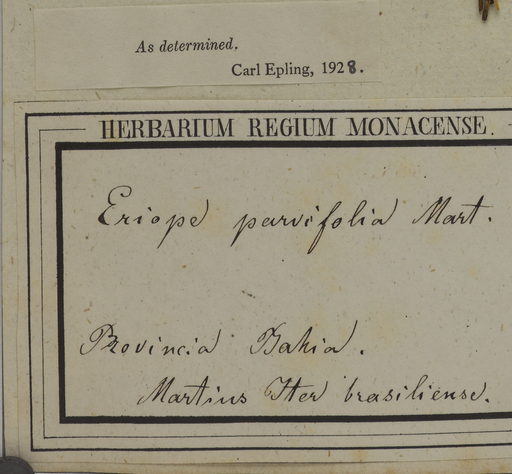 As determined.
Carl Epling, 1928.
HERBARIUM REGIUM MONACENSE.
Eriope parvifolia Mart.
Provincia Bahia.
Martius Iter brasiliense.